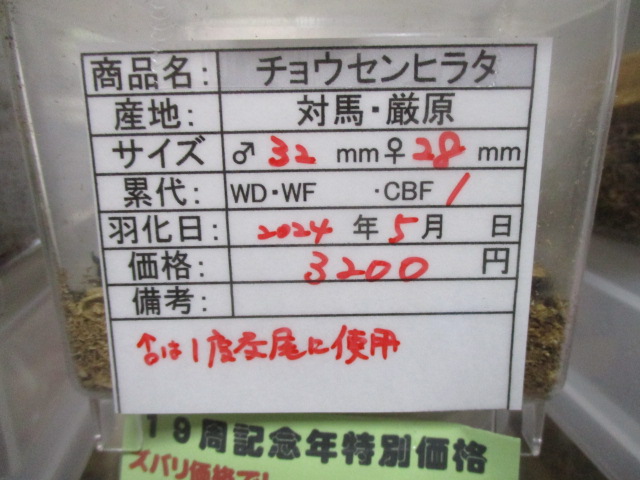 商品名: チョウセンヒラタ
産地: 対馬・厳原
サイズ ♂ 32 mm♀ 28 mm
累代: WD・WF ・CBF1
羽化日: 2024 年 5 月 日
価格: 3200 円
備考:
♂は1度交尾に使用
19周記念年特別価格
ズバリ価格で!